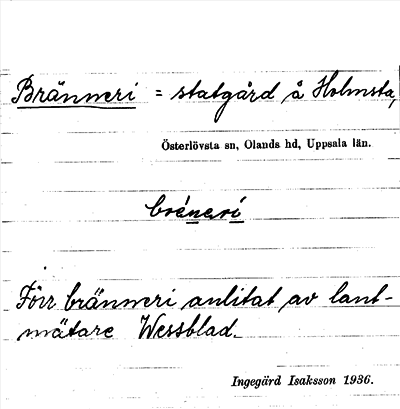 Bränneri = statgård å Holmsta,
Österlövsta sn, Olands hd, Uppsala län.
brénerí
Förr bränneri anlitat av lant-
mätare Wessblad.
Ingegärd Isaksson 1936.